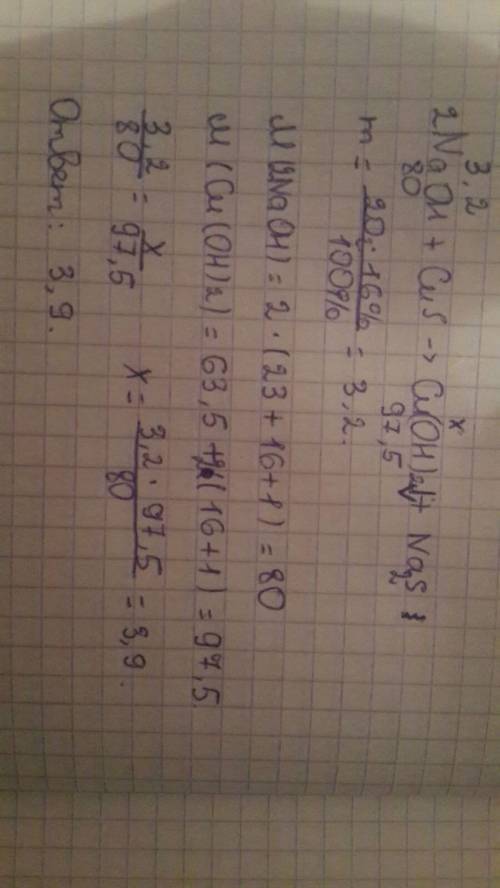 3,2 x
2NaOH + CuS → Cu(OH)2↓ + Na2S
80 97,5
m = 20·16% / 100% = 3,2.
M(2NaOH) = 2·(23+16+1) = 80
M(Cu(OH)2) = 63,5 + 2(16+1) = 97,5
3,2/80 = x/97,5 x = 3,2·97,5 / 80 = 3,9.
Ответ: 3,9.